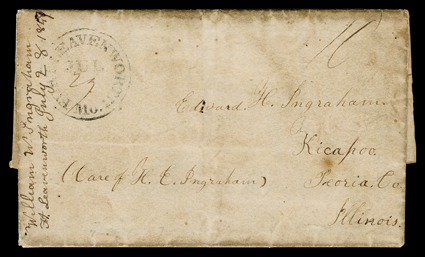 William W. Ingraham
Ft. Leavenworth July 28 1847
FT. LEAVENWORTH
JUL
29
MO.
10
Edward H. Ingraham
Kicapoo
(Care of H. E. Ingraham)
Peoria Co
Illinois.